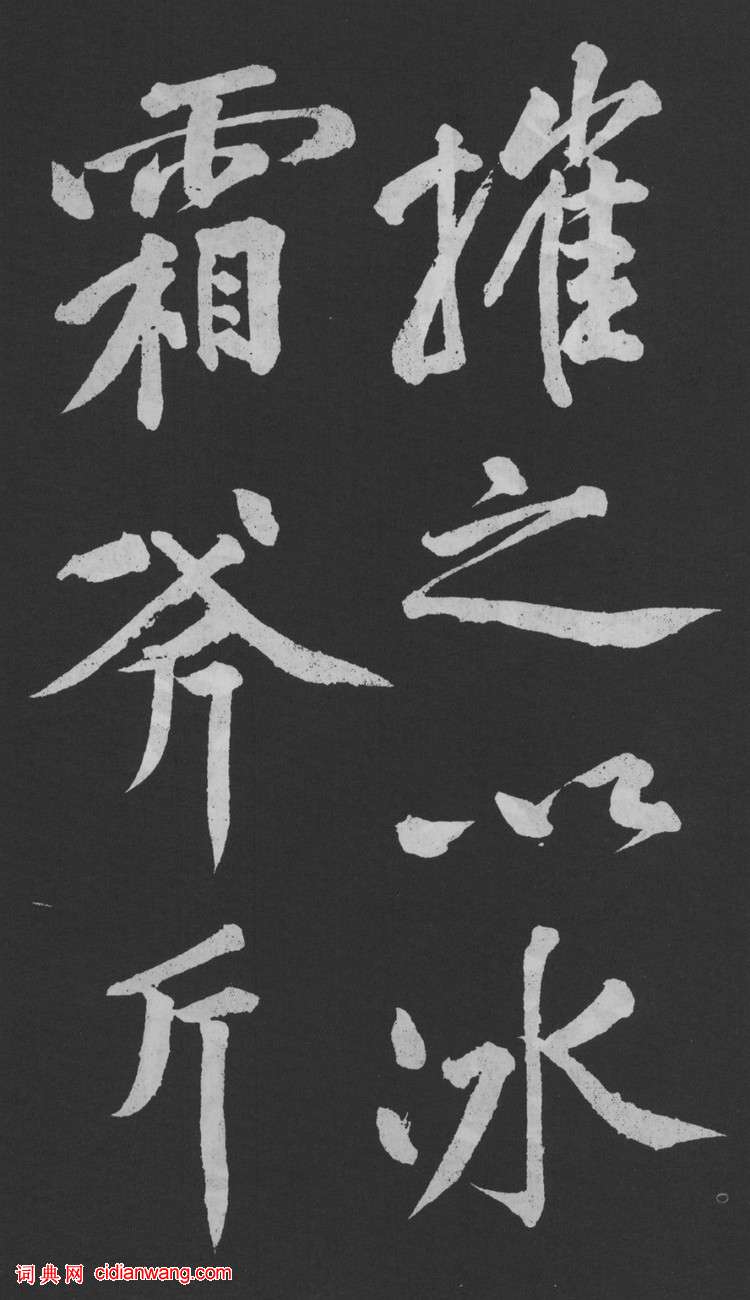 摧之以冰
霜斧斤
词典网 cidianwang.com